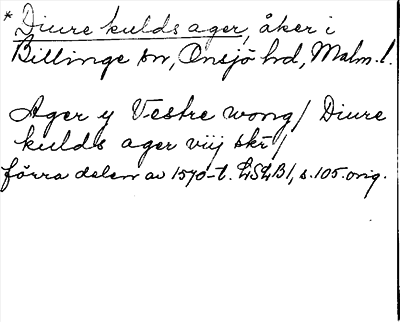 * Diure kulds ager, åker i
Billinge sn, Onsjö hd, Malm. l.
Ager y Vestre wong/ Diure
kulds ager viij skr/
förra delen av 1570-t. LSLB1, s. 105. orig.